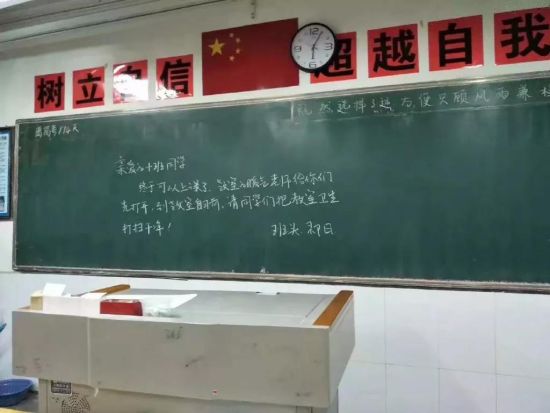 树立自信 超越自我
既然选择了远方，便只顾风雨兼
离高考114天
亲爱的十班同学
终于可以上课了，教室的暖气老师给你们
先打开，到教室后，请同学们把教室卫生
打扫干净！
班头